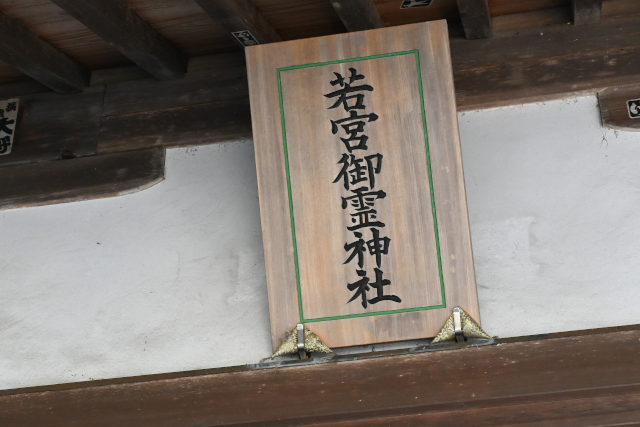 若宮御霊神社